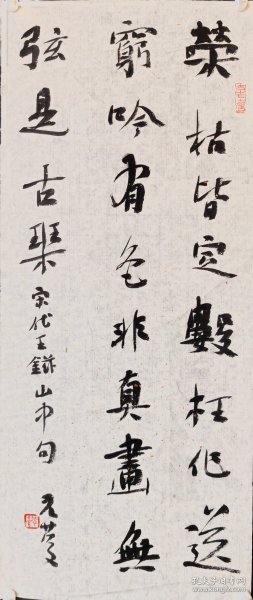 榮枯皆定數枉作送
窮吟有色非真畫無
弦是古琴宋代王鎡山中句